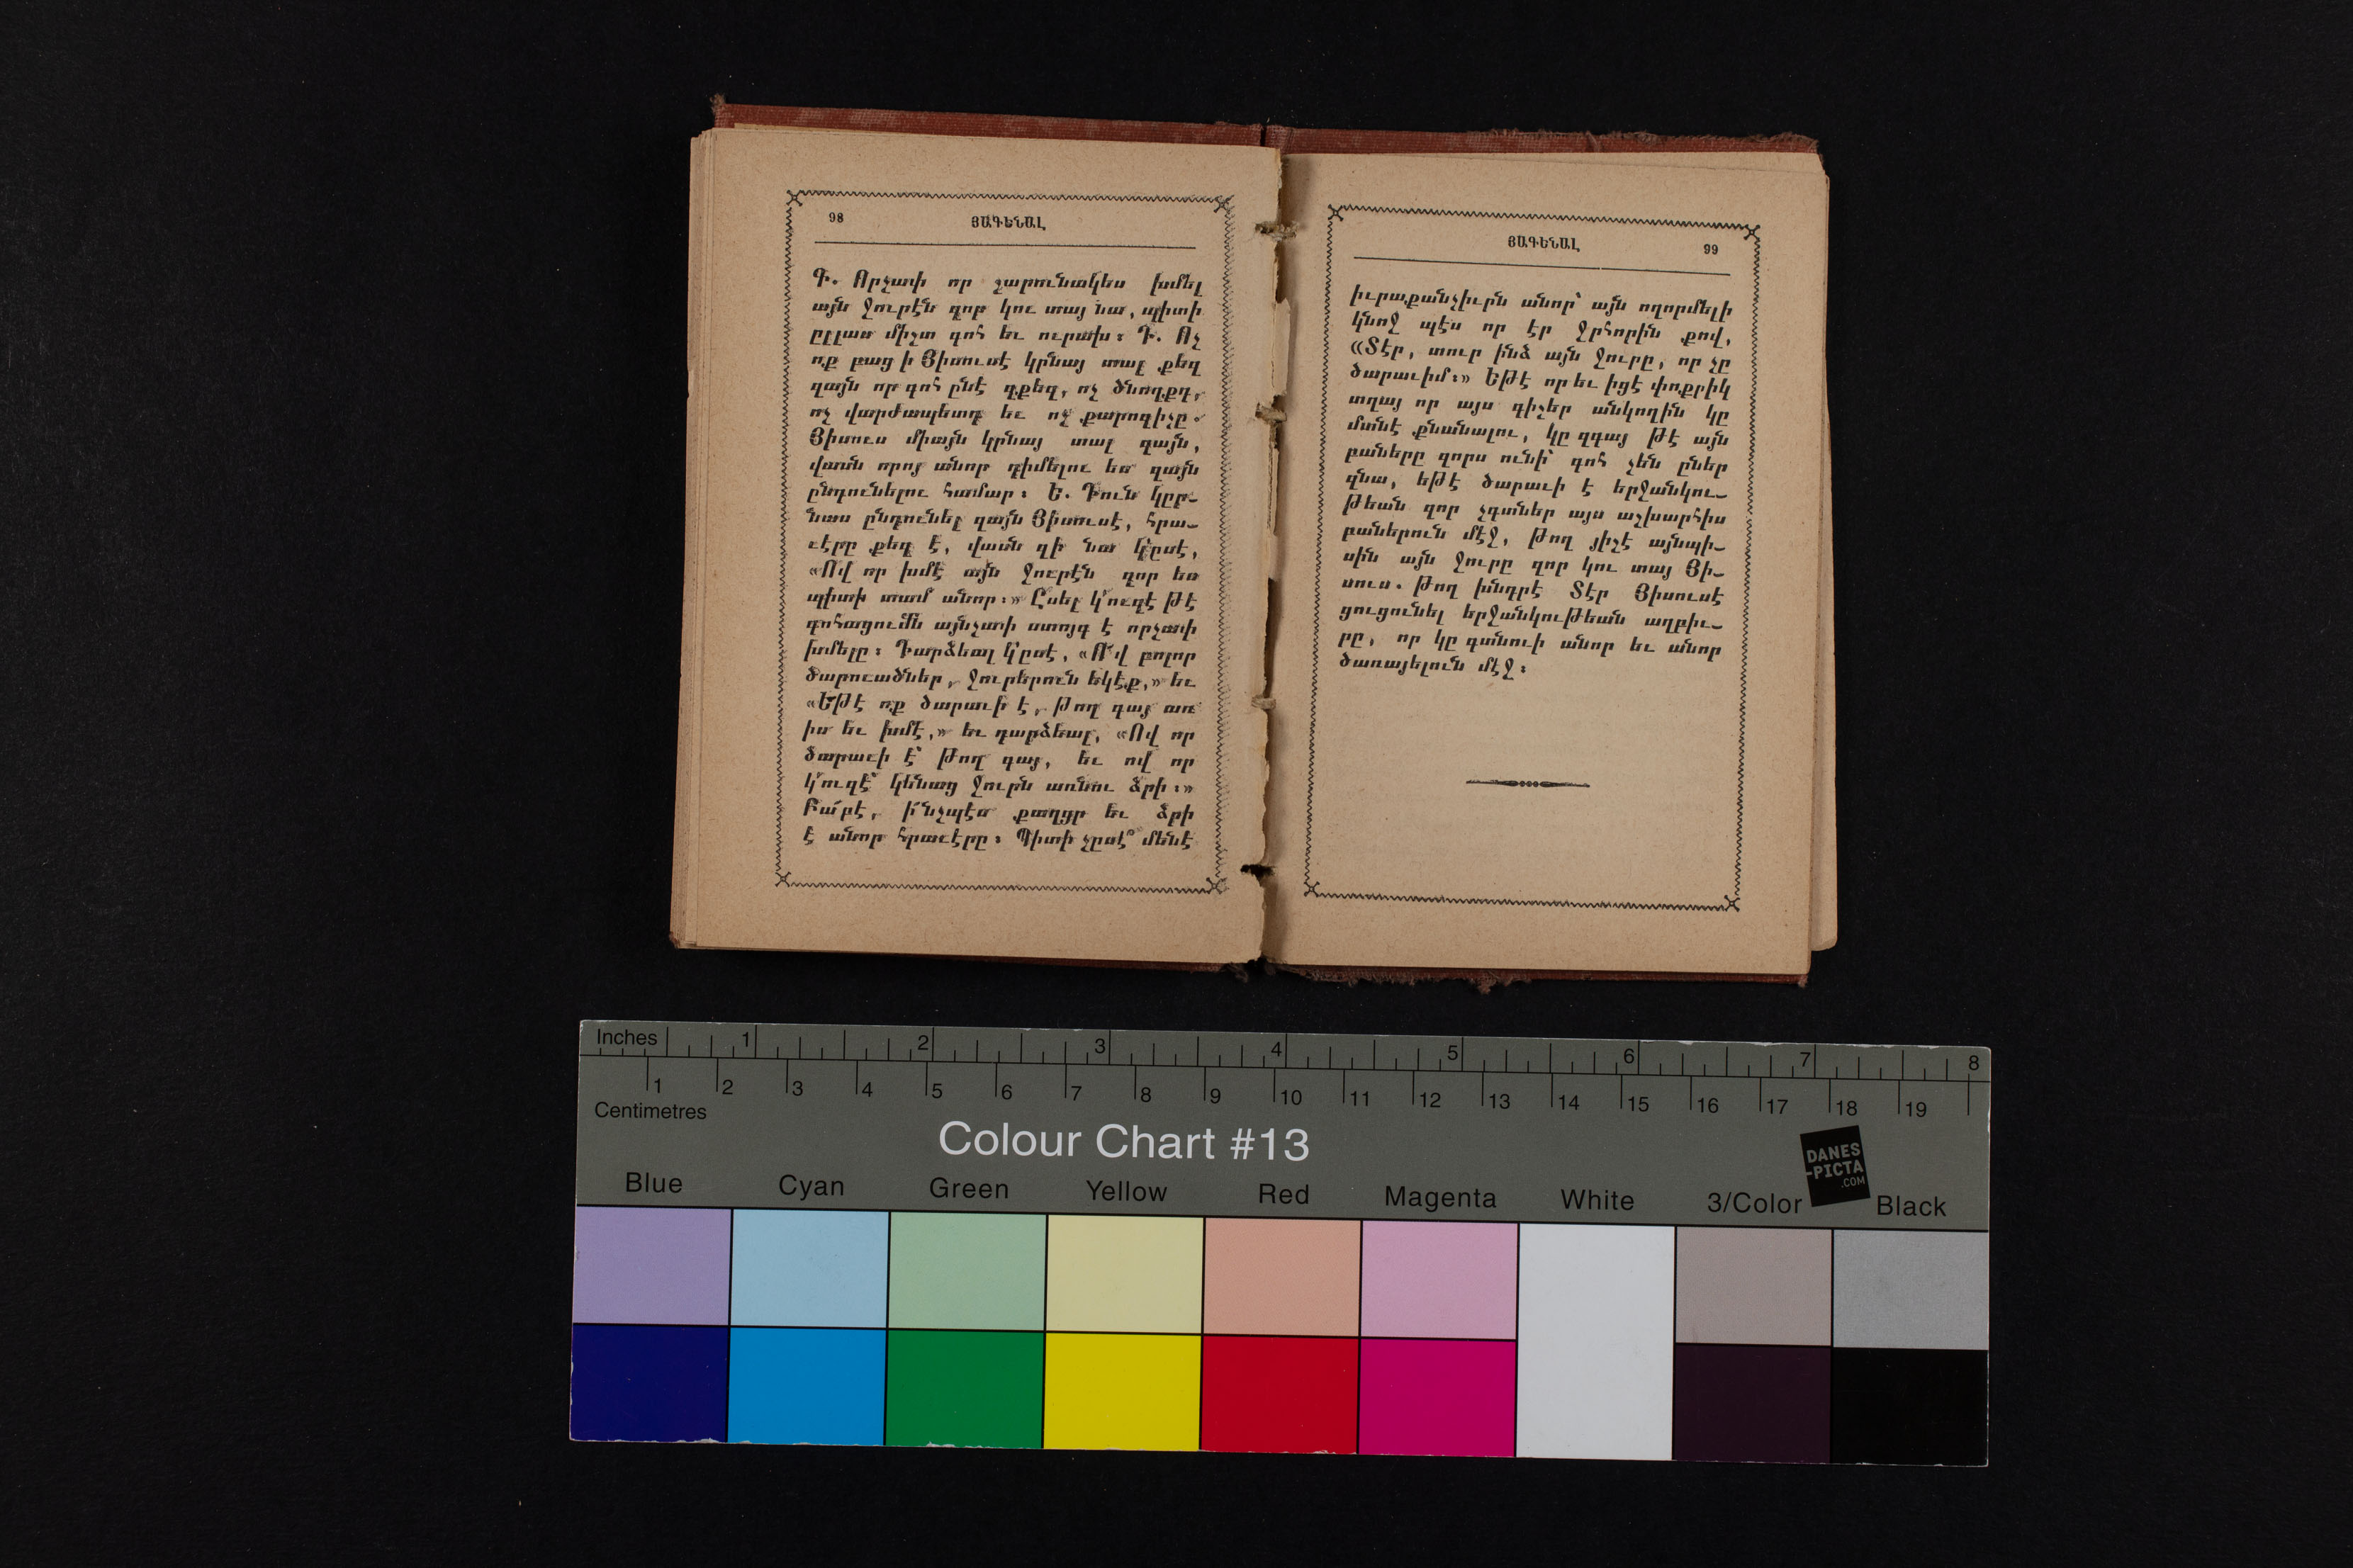 98 ՅԱԳԵՆԱԼ
Գ. Որչափ որ շարունակես խմել
այն ջուրէն զոր կու տայ նա, պիտի
ըլլաս միշտ գոհ եւ ուրախ։ Դ. Ոչ
ոք բաց ի Յիսուսէ կրնայ տալ քեզ
զայն որ գոհ ընէ զքեզ, ոչ ծնողքդ,
ոչ վարժապետդ եւ ոչ քարոզիչը.
Յիսուս միայն կրնայ տալ զայն,
վասն որոյ անոր դիմելու ես զայն
ընդունելու համար։ Ե. Դուն կըր-
նաս ընդունել զայն Յիսուսէ, հրա-
ւէրը քեզ է, վասն զի նա կ՚ըսէ,
«Ով որ խմէ այն ջուրէն զոր ես
պիտի տամ անոր։» Ըսել կ՚ուզէ թէ
գոհացումն այնչափ ստոյգ է որչափ
խմելը։ Դարձեալ կ՚ըսէ, «Ո՜վ բոլոր
ծարուածներ, ջուրերուն եկէք,» եւ
«Եթէ ոք ծարաւի է, թող գայ առ
իս եւ խմէ,» եւ դարձեալ, «Ով որ
ծարաւի է՝ թող գայ, եւ ով որ
կ՚ուզէ՝ կենաց ջուրն առնու ձրի։»
Բա՛բէ, ի՛նչպէս քաղցր եւ ձրի
է անոր հրաւէրը։ Պիտի չըսէ՞ մենէ
ՅԱԳԵՆԱԼ 99
իւրաքանչիւրն անոր՝ այն ողորմելի
կնոջ պէս որ էր ջրհորին քով,
«Տէր, տուր ինձ այն ջուրը, որ չը
ծարաւիմ։» Եթէ որ եւ իցէ փոքրիկ
տղայ որ այս գիշեր անկողին կը
մտնէ քնանալու, կը զգայ թէ այն
բաները զորս ունի՝ գոհ չեն ըներ
զնա, եթէ ծարաւի է երջանկու-
թեան զոր չգտներ այս աշխարհիս
բաներուն մէջ, թող յիշէ այնպի-
սին այն ջուրը զոր կու տայ Յի-
սուս. թող խնդրէ Տէր Յիսուսէ
ցուցունել երջանկութեան աղբիւ-
րը, որ կը գտնուի անոր եւ անոր
ծառայելուն մէջ։
Inches 1 2 3 4 5 6 7 8
1 2 3 4 5 6 7 8 9 10 11 12 13 14 15 16 17 18 19
Centimetres
Colour Chart #13
DANES
-PICTA
.COM
Blue Cyan Green Yellow Red Magenta White 3/Color Black